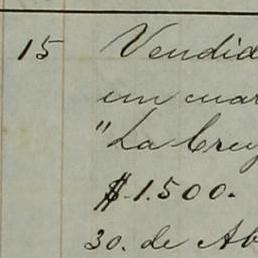 15 Vendid
un cuar
"La Cruz
$1.500.
30. de Ab